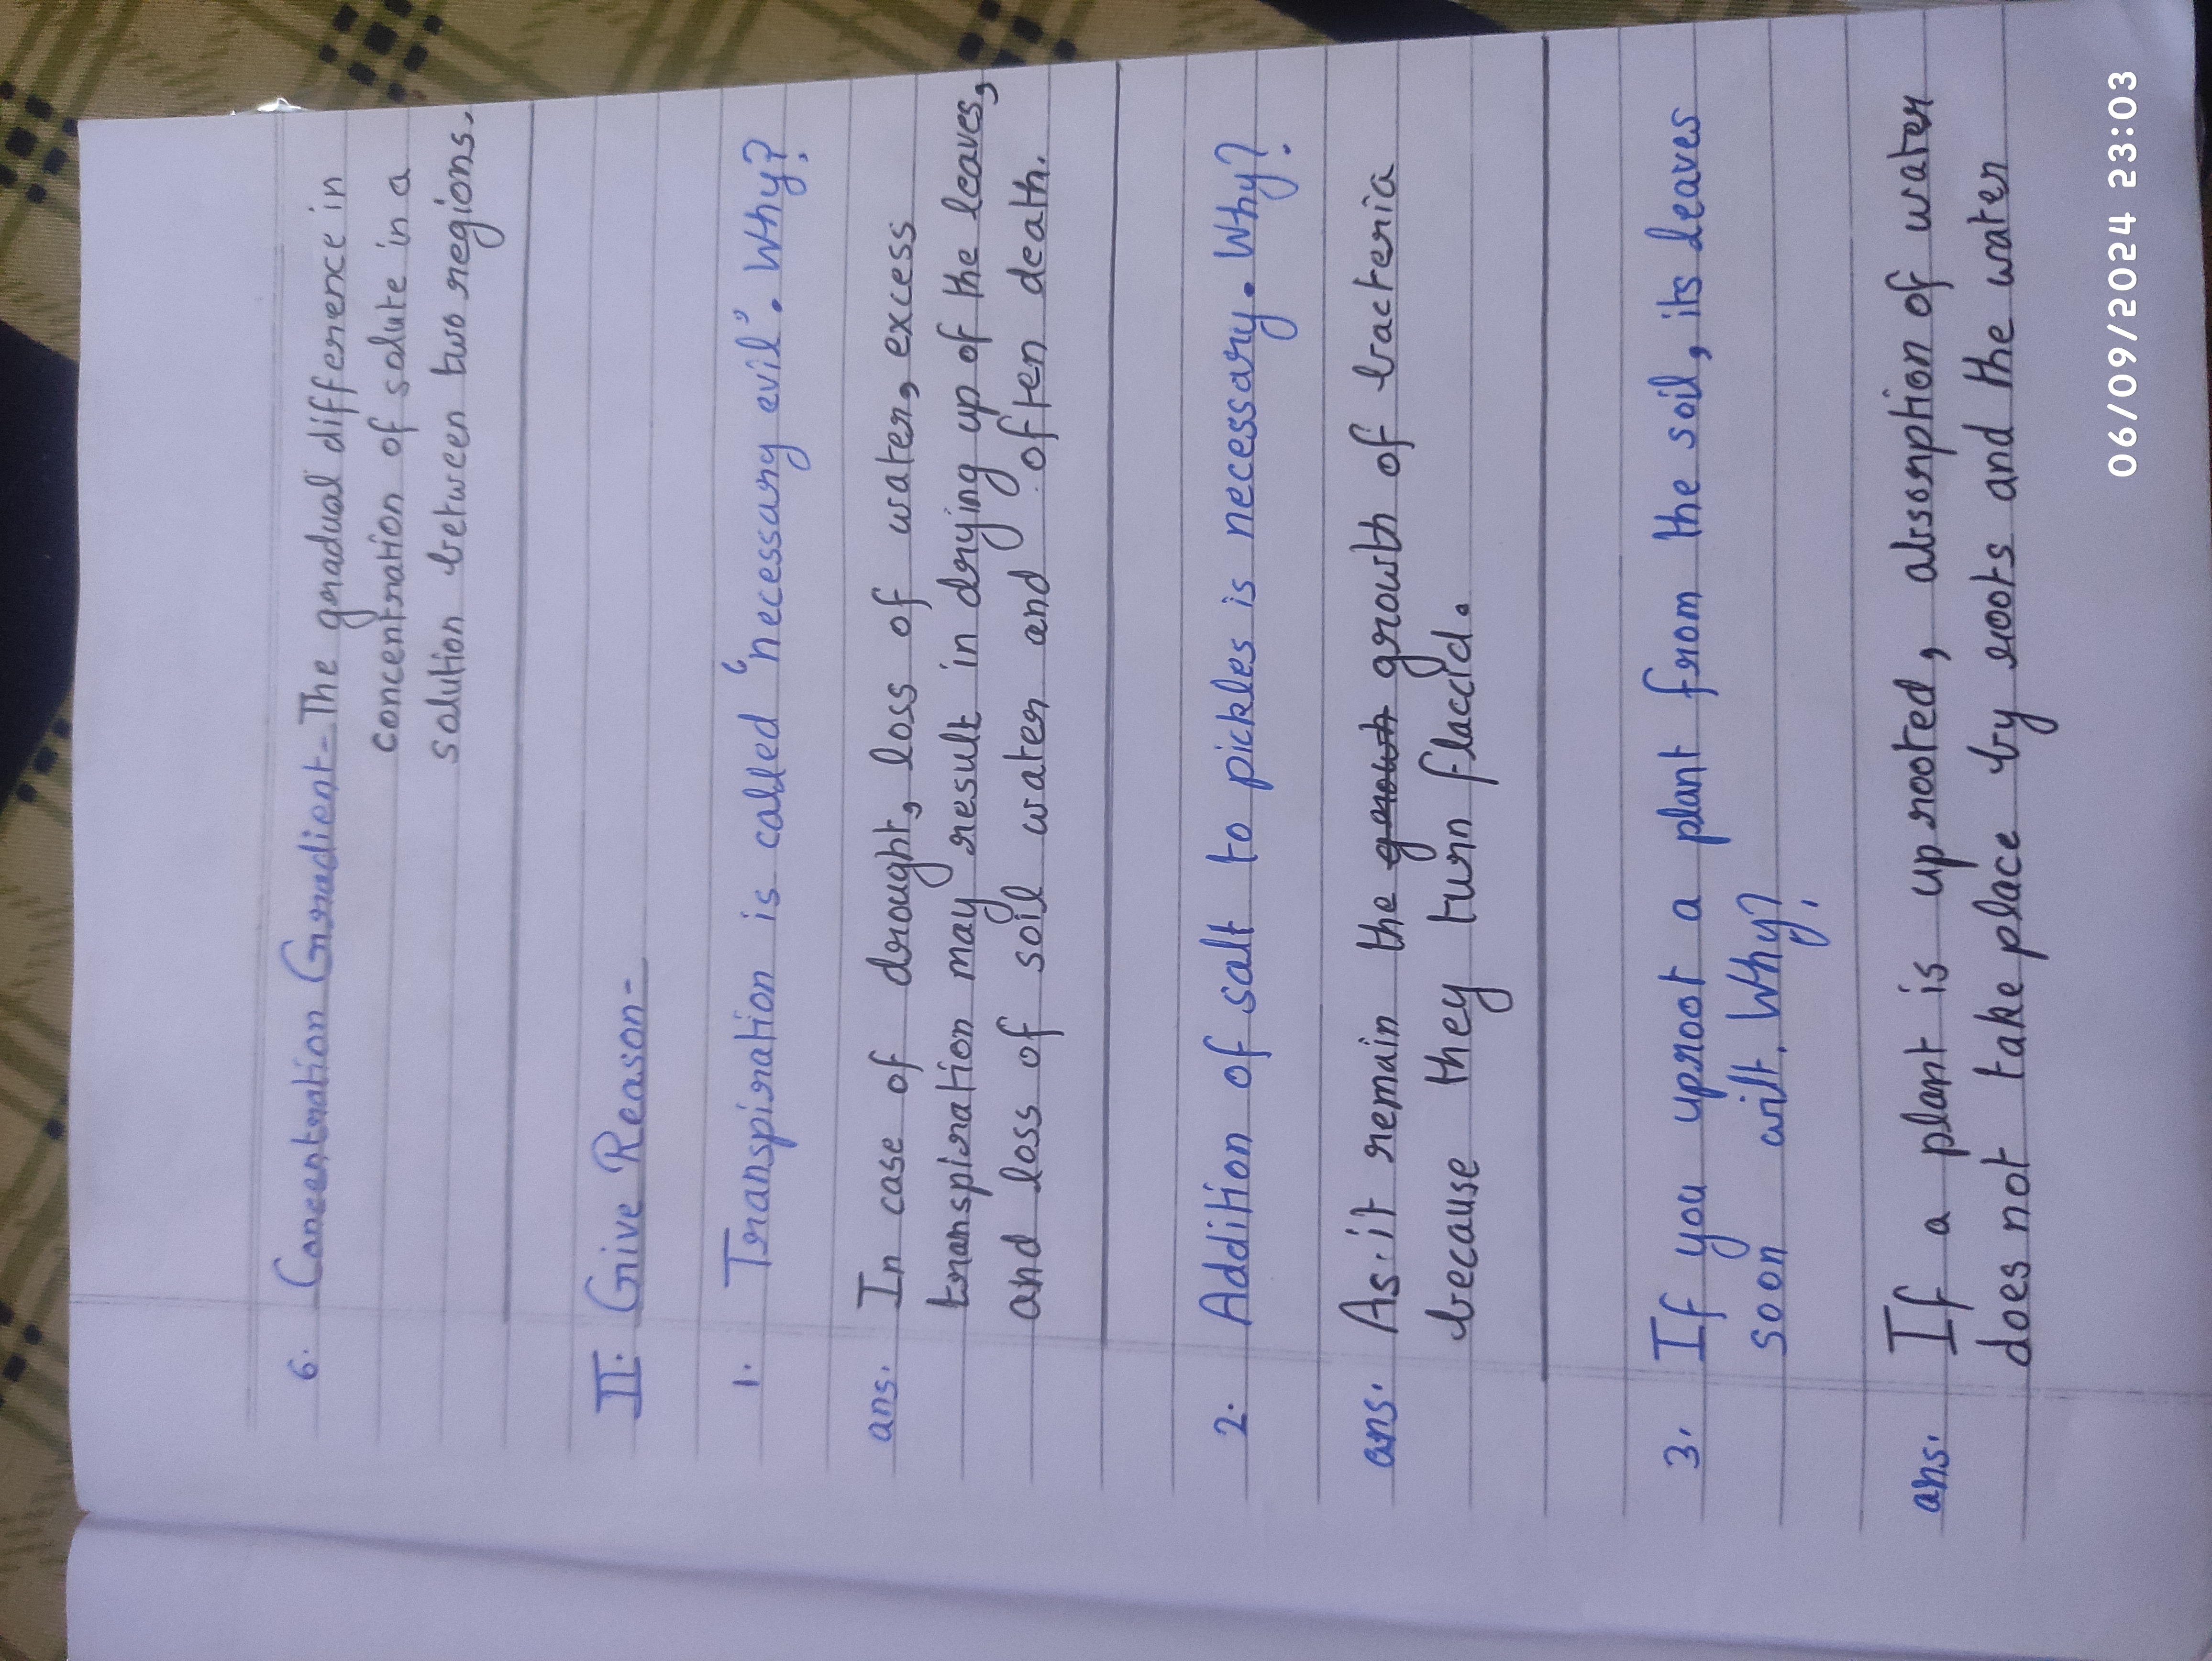 6. Concentration Gradient - The gradual difference in
concentration of solute in a
solution between two regions.
II. Give Reason-
1. Transpiration is called 'necessary evil'. Why?
ans. In case of drought, loss of water, excess
transpiration may result in drying up of the leaves,
and loss of soil water and often death.
2. Addition of salt to pickles is necessary. Why?
ans. As it remain the growth growth of bacteria
because they turn flaccid.
3. If you uproot a plant from the soil, its leaves
soon wilt. Why?
ans. If a plant is uprooted, absorption of water
does not take place by roots and the water
06/09/2024 23:03